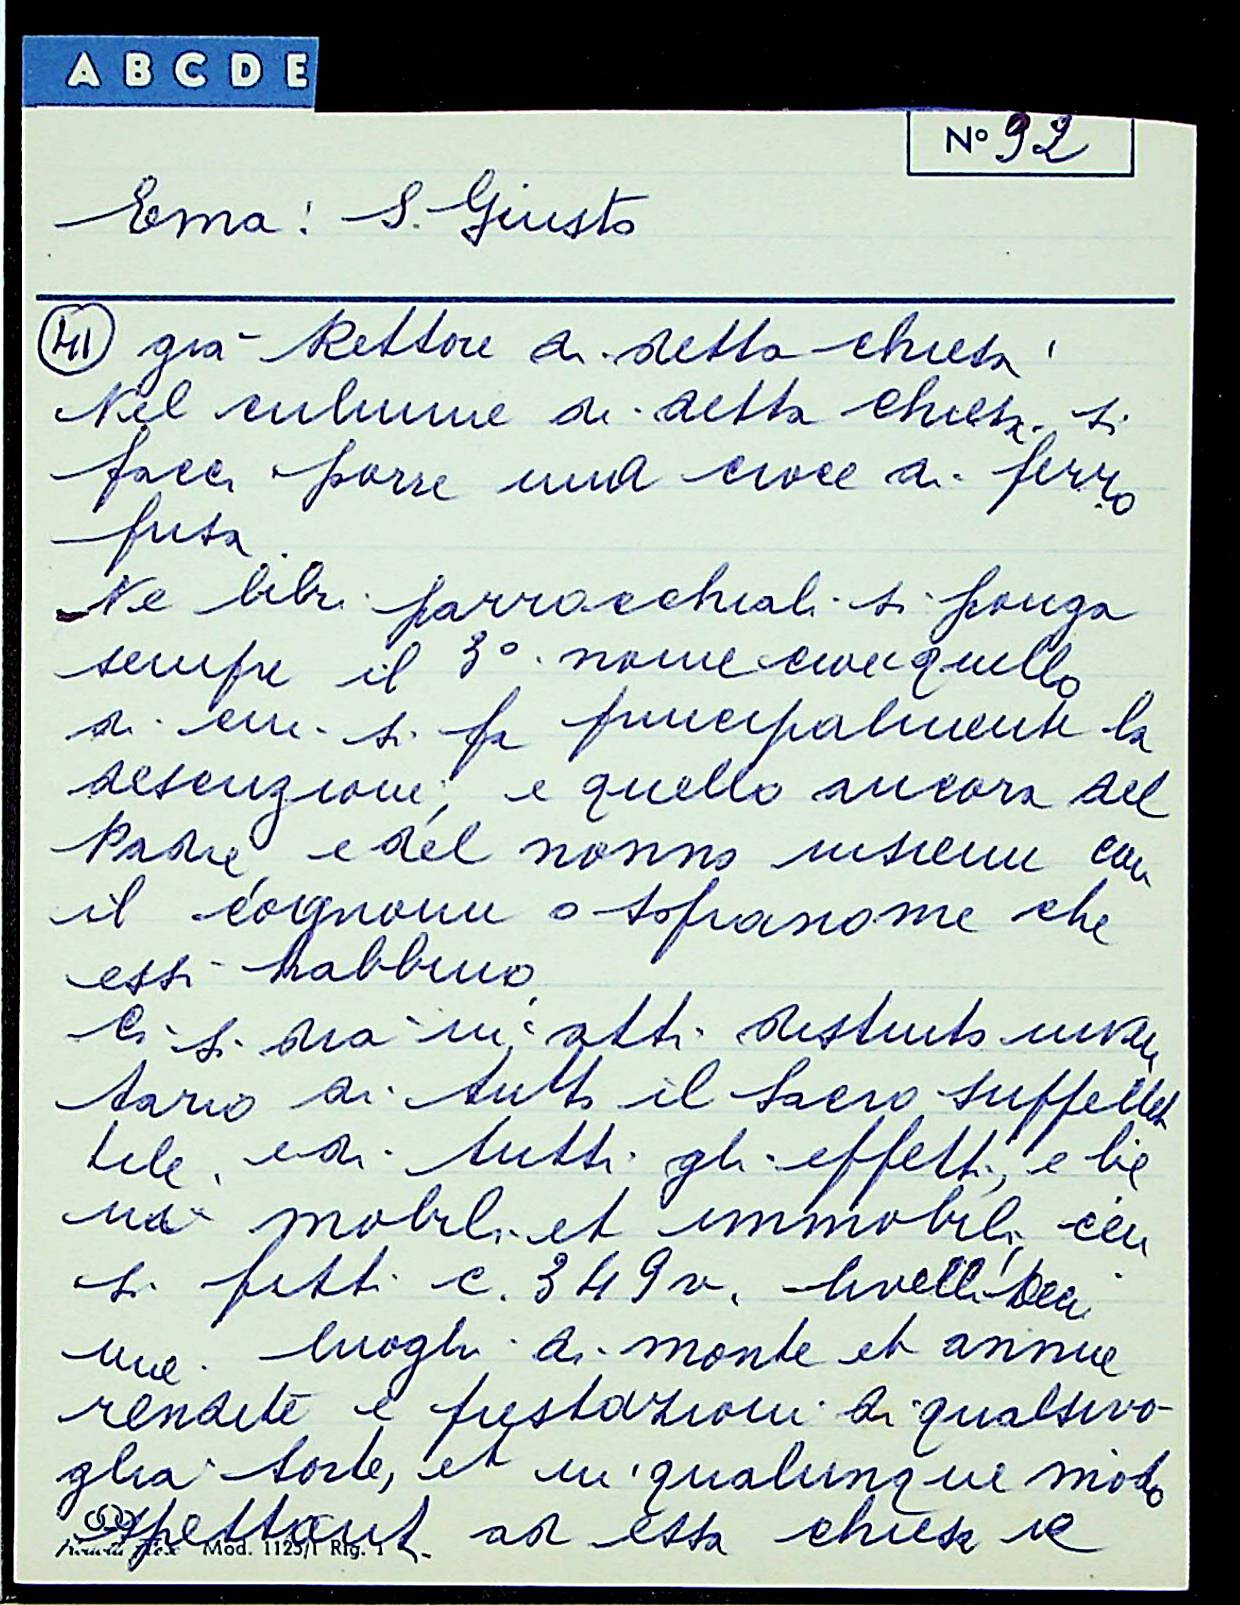 A B C D E
Nº 92
Ema: S. Giusto
41 già Rettore di detta chiesa!
Nel culmine di detta chiesa si
facci porre una croce di ferro
fusa.
Ne libri parrocchiali si ponga
sempre il 3º nome cioe quello
di cui si fa principalmente la
descrizione, e quello ancora del
Padre, e del nonno insieme con
il cognome o sopranome che
essi habbino
Ci si dia in atti distinto inven
tario di tutto il sacro suppellet
tile, e di tutti gli effetti, e be
ni mobili et immobili, cen
si fitti c. 349v. livelli deci
me luoghi di monte et annue
rendite e prestazioni di qualsivo-
glia sorte, et in qualunque modo
spettant. ad essa chiesa e
Mod. 1125/1 Rig. 1